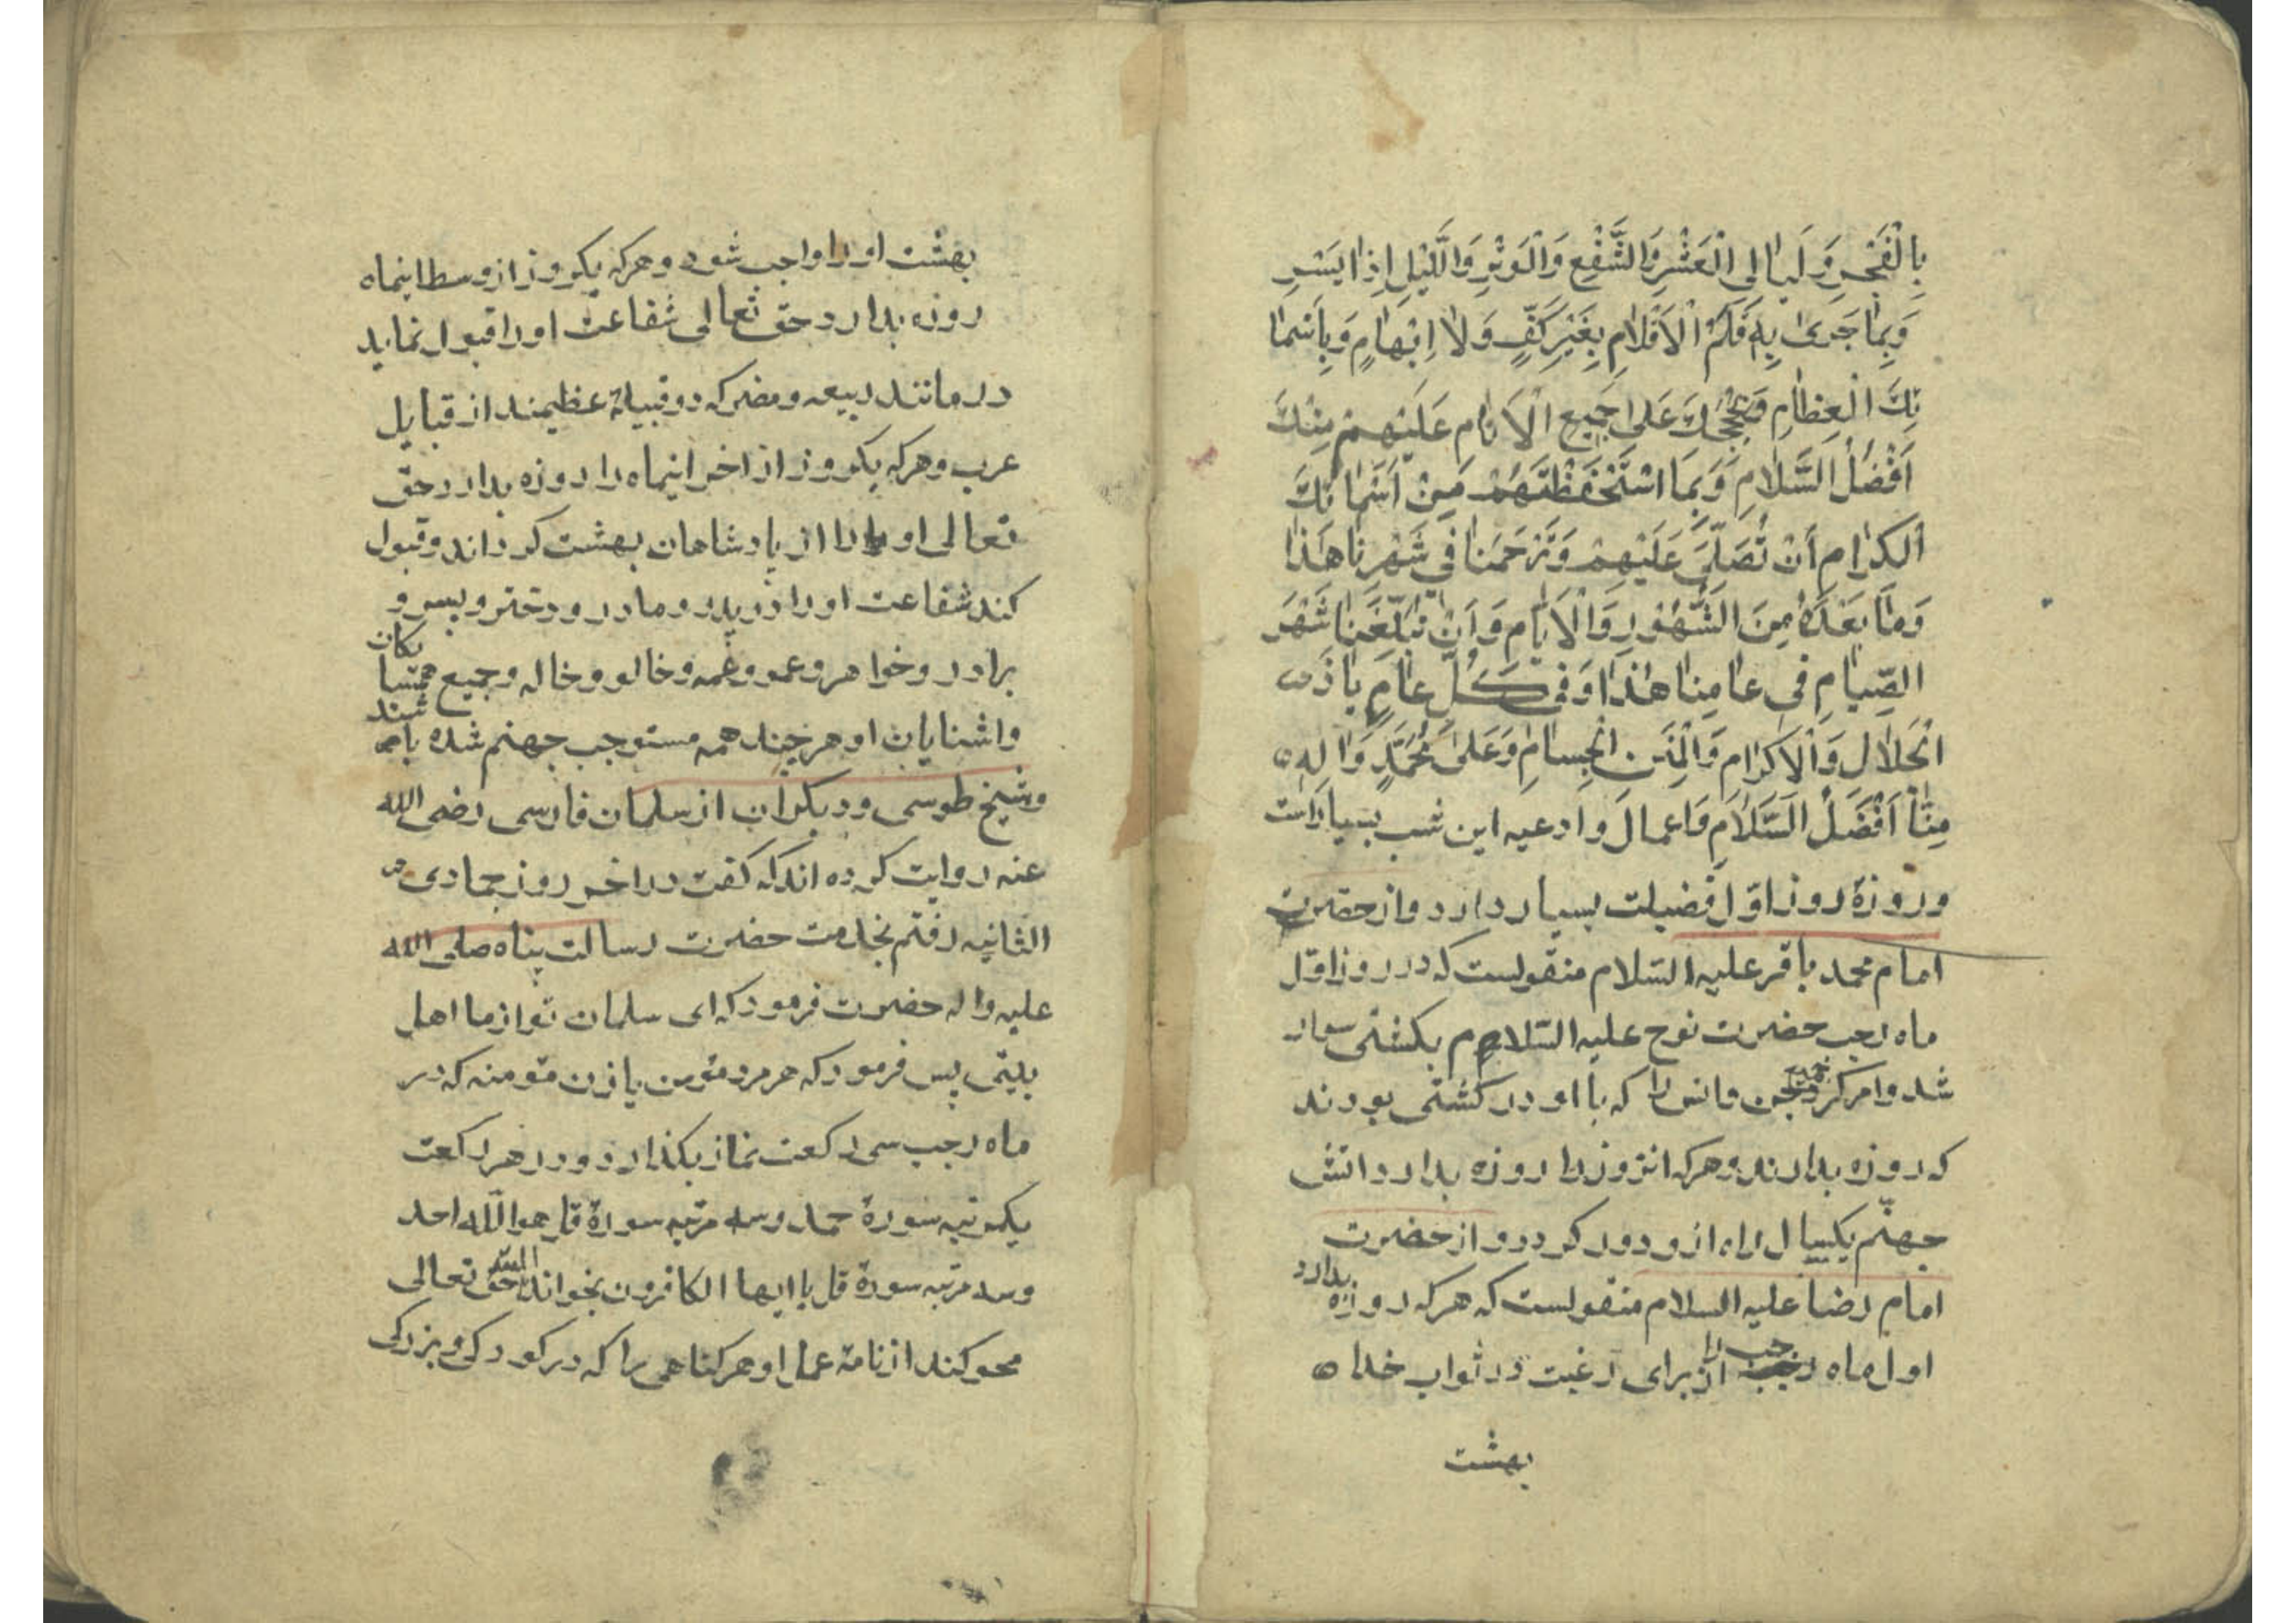 بِالْفَجْرِ وَلَيَالِى الْعَشْرِ وَالشَّفْعِ وَالْوَتْرِ وَاللَّيْلِ اِذَا يَسْرِ
وَبِمَا جَرىٰ بِهِ قَلَمُ الْاَقْلَامِ بِغَيْرِ كَفٍّ وَلَا اِبْهَامٍ وَبِاَسْمَا
ئِكَ الْعِظَامِ وَبِحُجَجِكَ عَلىٰ جَمِيعِ الْاَنَامِ عَلَيْهِمْ مِنْكَ
اَفْضَلُ السَّلَامِ وَبِمَا اسْتَحْفَظْتَهُمْ مِنْ اَسْمَائِكَ
الْكِرَامِ اَنْ تُصَلِّىَ عَلَيْهِمْ وَتَرْحَمَنَا فِى شَهْرِنَا هٰذَا
وَمَا بَعْدَهُ مِنَ الشُّهُورِ وَالْاَيَّامِ وَاَنْ تُبَلِّغَنَا شَهْرَ
الصِّيَامِ فِى عَامِنَا هٰذَا وَفِى كُلِّ عَامٍ يَا ذَا
الْجَلَالِ وَالْاِكْرَامِ وَالْمِنَنِ الْجِسَامِ وَعَلىٰ مُحَمَّدٍ وَالِهِ
مِنَّا اَفْضَلُ السَّلَامِ وَاعمال وادعیه این شب بسیار است
وروزۀ روز اوّل فضیلت بسیار دارد واز حضرت
امام محمد باقر علیه السلام منقولست که در روز اوّل
ماه رجب حضرت نوح علیه السّلام بکشتی سوار
شد وامر کرد جن وانس را که با او در کشتی بودند
که روزه بدارند وهرکه انروز را روزه بدارد اتش
جهنّم یکسال راه ازو دور کردد واز حضرت
امام رضا علیه السلام منقولست که هر که روزه بدارد
اول ماه رجب را از برای رغبت در ثواب خدا
بهشت
بهشت او را واجب شود وهرکه یکروز از وسط اینماه
روزه بدارد حق تعالی شفاعت او را قبول نماید
در مانند ربیعه ومضر که دو قبیلۀ عظیمند از قبایل
عرب وهرکه یکروز از اخر اینماه را روزه بدارد حق
تعالی او را از پادشاهان بهشت کرداند وقبول
کند شفاعت او را در پدر ومادر ودختر وپسر و
برادر وخواهر وعمو وعمه وخالو وخاله وجمیع همسایکان
واشنایان او هر چند همه مستوجب جهنم شده باشند
وشیخ طوسی ودیکران از سلمان فارسی رضی الله
عنه روایت کرده اند که کفت در اخر روز جمادی
الثانیه رفتم بخدمت حضرت رسالت پناه صلی الله
علیه واله حضرت فرمود که ای سلمان تو از ما اهل
بیتی پس فرمود که هر مرد مؤمن یا زن مؤمنه که در
ماه رجب سی رکعت نماز بکذارد ودر هر رکعت
یکمرتبه سورۀ حمد وسه مرتبه سورۀ قل هو الله احد
وسه مرتبه سورۀ قل یا ایها الکافرون بخواند البته حق تعالی
محو کند از نامۀ عمل او هر کناهی را که در کودکی وبزرکی